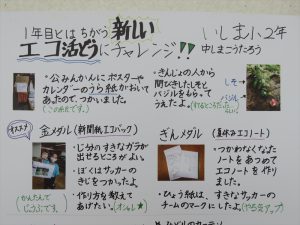 1年目とはちがう新しい
エコ活どうにチャレンジ!!
いしま小2年
中しまこうたろう
・公みんかんにポスターや
カレンダーのうら紙がおいて
あったので、つかいました。
(この紙です。)
・きんじょの人から
のびきしたしそと
バジルをもらって
うえたよ。
しそ
バジル
オススメ
金メダル(新聞紙エコバック)
・じ分のすきながらが
出せるところがよい。
・ぼくはサッカーの
きじをつかったよ。
・作り方を教えて
あげたい。(オシャレ★)
(かんたんで
じょうぶです。)
ぎんメダル(夏休みエコノート)
・つかわなくなった
ノートをあつめて
エコノートを作り
ました。
・ひょう紙は、すきなサッカー
チームのマークにしたよ。